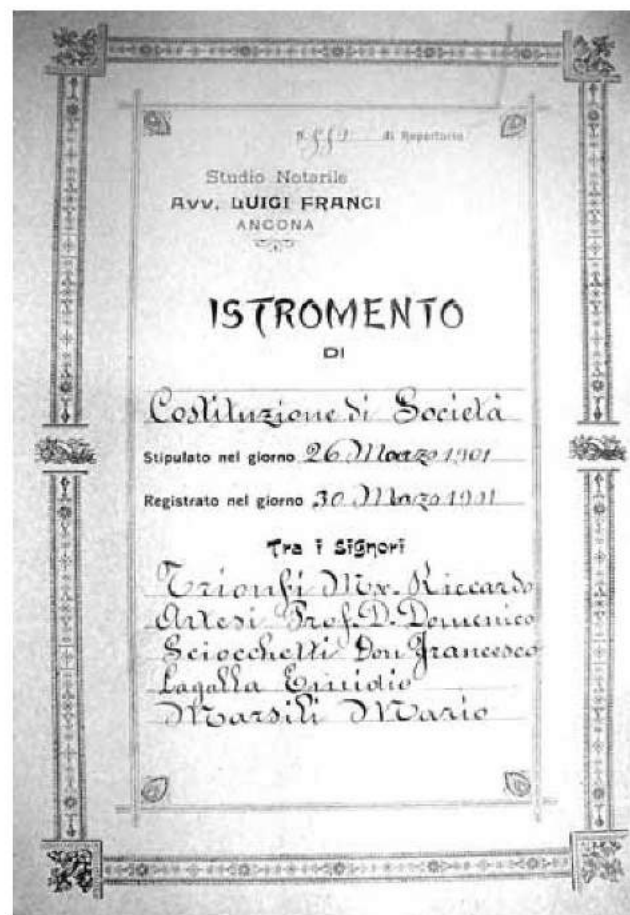 N. 552 di Repertorio
Studio Notarile
Avv. LUIGI FRANCI
ANCONA
ISTROMENTO
DI
Costituzione di Società
Stipulato nel giorno 26 Marzo 1901
Registrato nel giorno 30 Marzo 1901
Tra i Signori
Trionfi Mx. Riccardo
Artesi Prof. D. Domenico
Sciocchetti Don Francesco
Lagalla Emidio
Marsili Mario